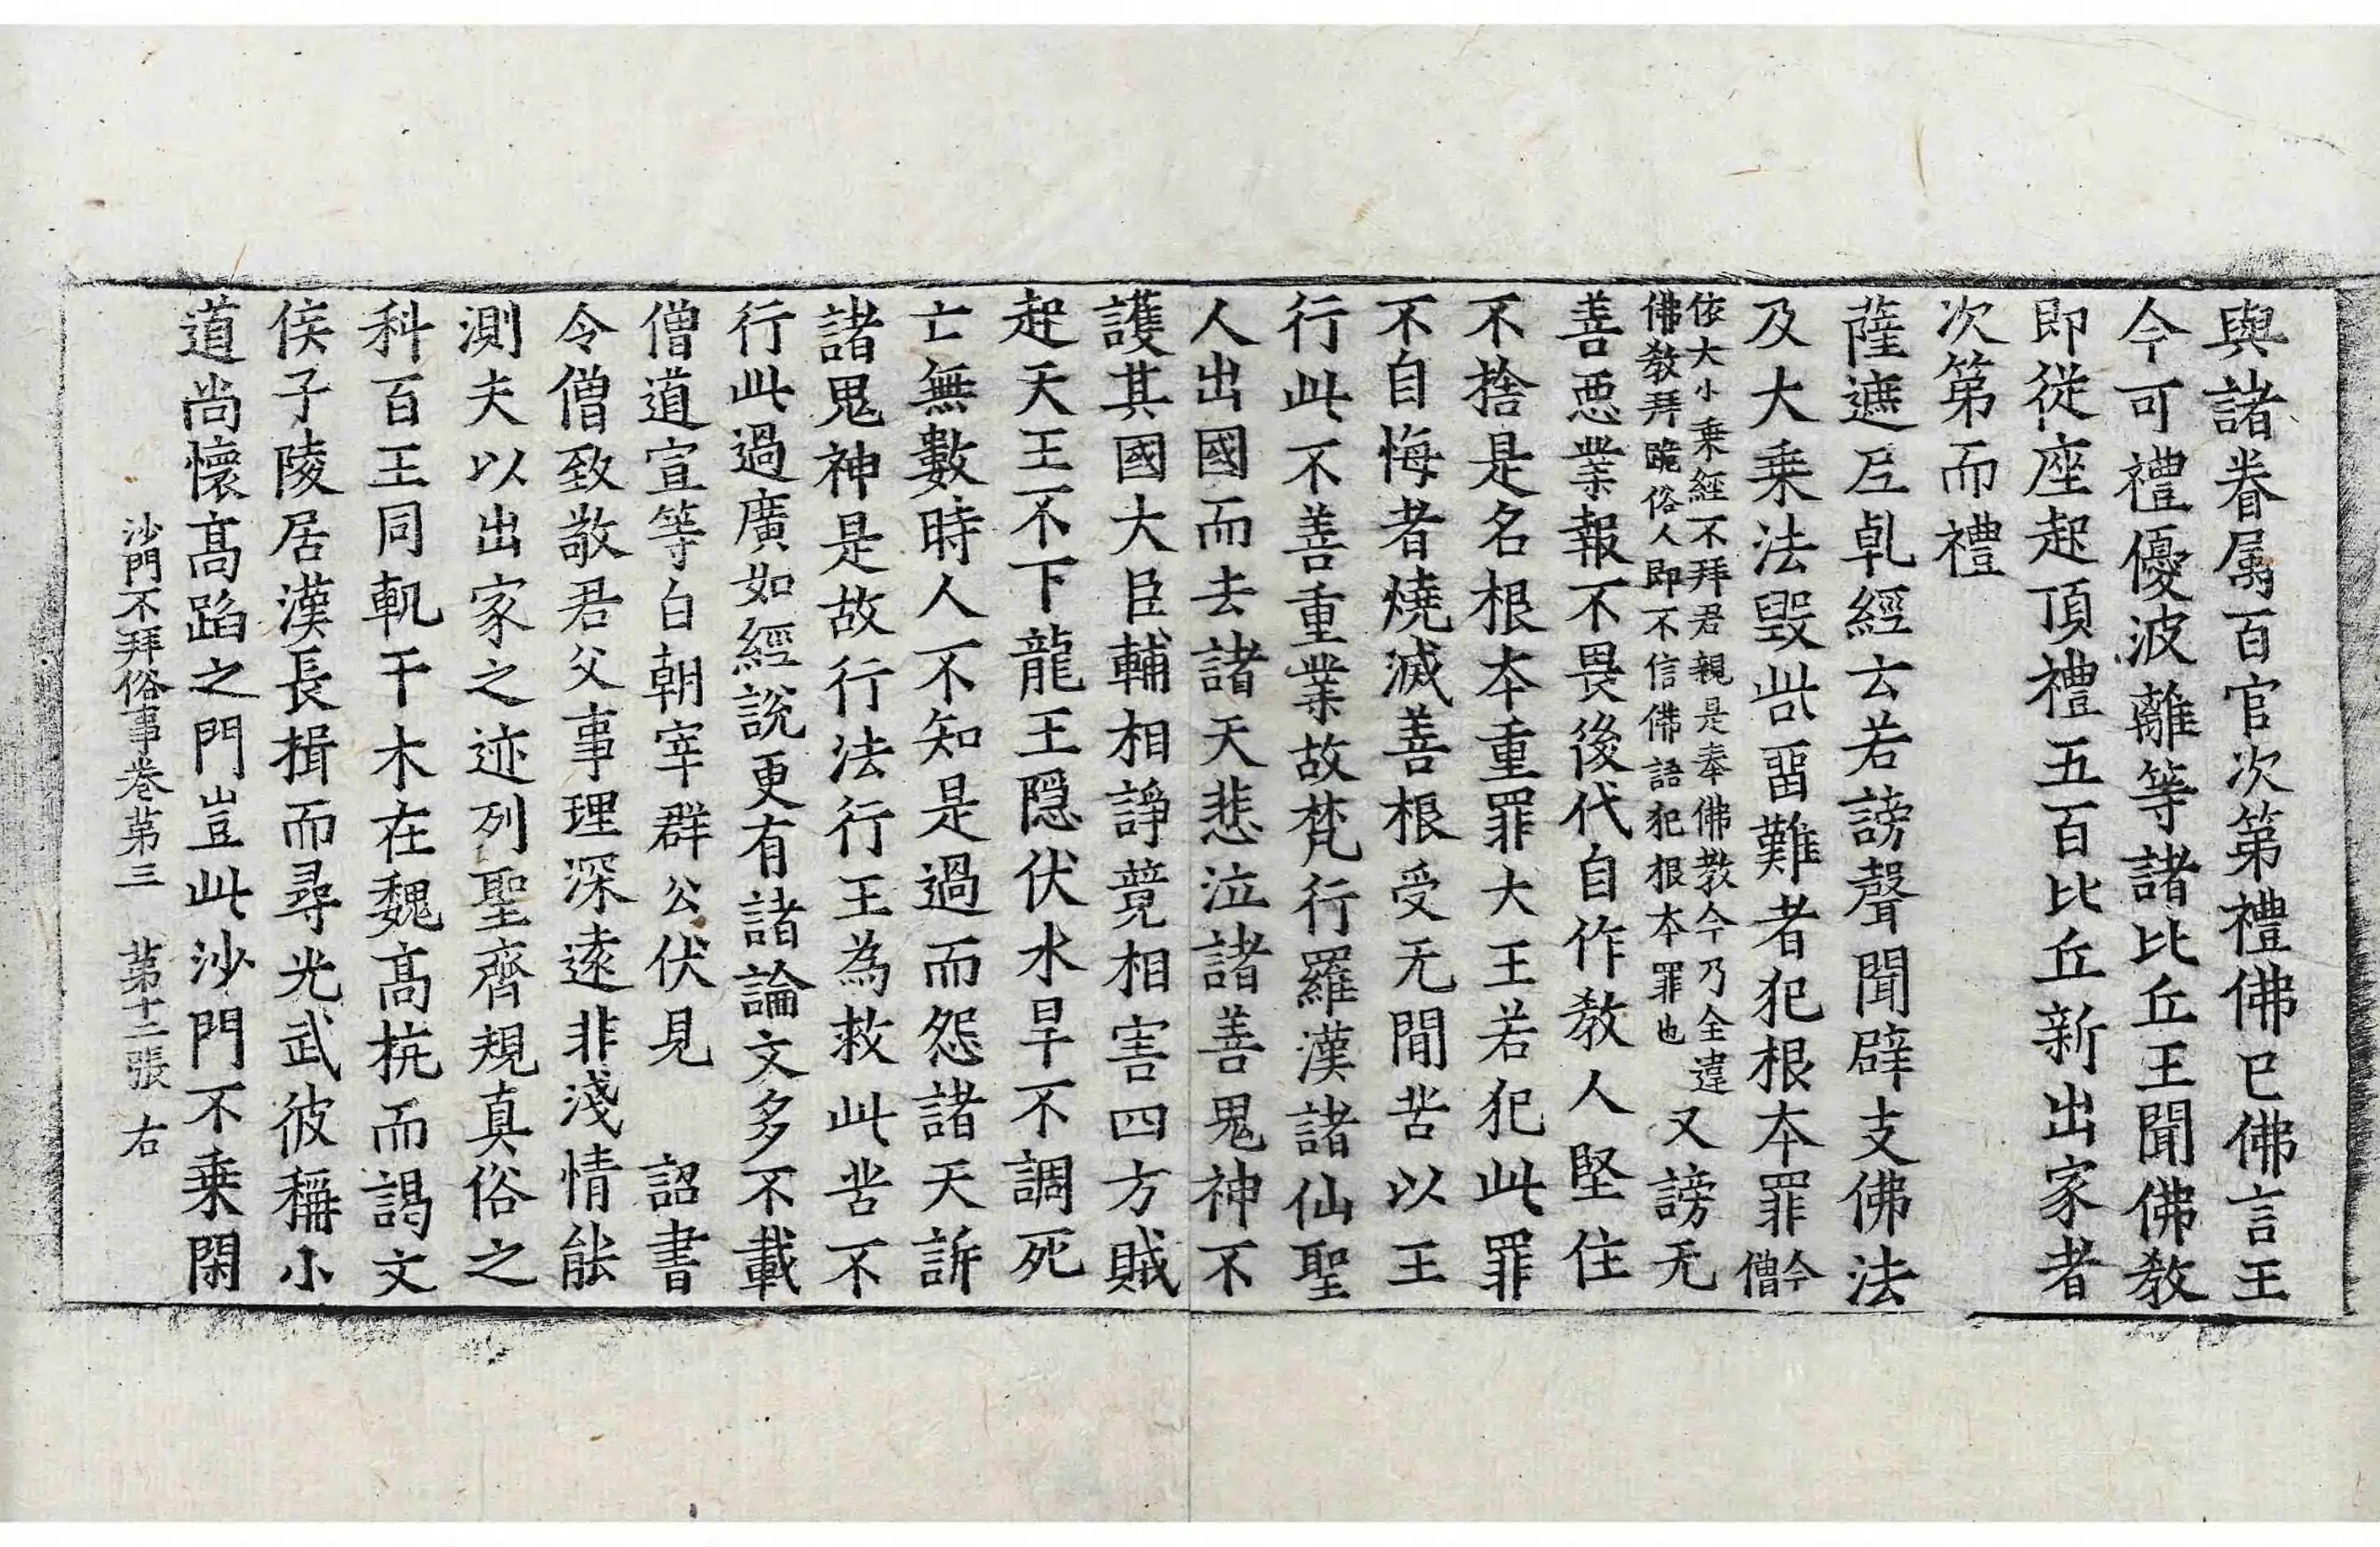 與諸眷属百官次第禮佛已佛言王
今可禮優波離等諸比丘王聞佛教
即從座起頂禮五百比丘新出家者
次第而禮
薩遮尼乹經云若謗聲聞辟支佛法
及大乗法毀呰留難者犯根本罪今僧
依大小乗經不拜君親是奉佛教今乃全違
佛教拜跪俗人即不信佛語犯根本罪也又謗无
善惡業報不畏後代自作教人堅住
不捨是名根本重罪大王若犯此罪
不自悔者燒滅善根受无間苦以王
行此不善重業故梵行羅漢諸仙聖
人出國而去諸天悲泣諸善鬼神不
護其國大臣輔相諍競相害四方賊
起天王不下龍王隐伏水旱不調死
亡無數時人不知是過而怨諸天訴
諸鬼神是故行法行王為救此苦不
行此過廣如經說更有諸論文多不載
僧道宣等白朝宰群公伏見 詔書
令僧致敬君父事理深逺非淺情能
測夫以出家之迹列聖齊規真俗之
科百王同軌干木在魏髙抗而謁文
侯子陵居漢長揖而尋光武彼稱小
道尚懷髙蹈之門豈此沙門不乗閑
沙門不拜俗事卷第三 第十二張 右